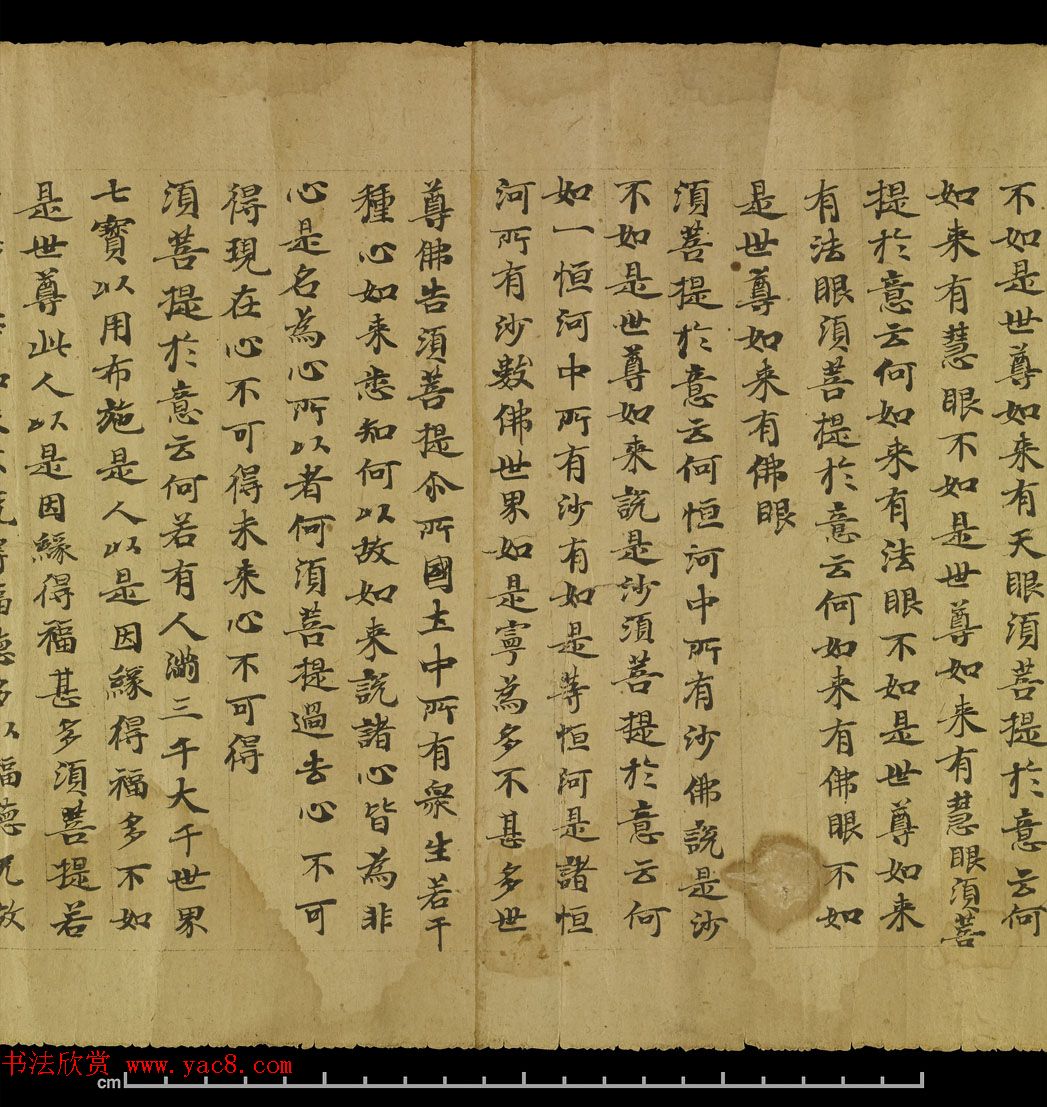 不如是世尊如来有天眼須菩提於意云何
如来有慧眼不如是世尊如来有慧眼須菩
提於意云何如来有法眼不如是世尊如来
有法眼須菩提於意云何如来有佛眼不如
是世尊如来有佛眼
須菩提於意云何恒河中所有沙佛說是沙
不如是世尊如来說是沙須菩提於意云何
如一恒河中所有沙有如是等恒河是諸恒
河所有沙數佛世界如是寧為多不甚多世
尊佛告須菩提尒所國土中所有衆生若干
種心如来悉知何以故如来說諸心皆為非
心是名為心所以者何須菩提過去心不可
得現在心不可得未来心不可得
須菩提於意云何若有人滿三千大千世界
七寶以用布施是人以是因緣得福多不如
是世尊此人以是因緣得福甚多須菩提若
福德多以福德
书法欣赏 www.yac8.com
cm